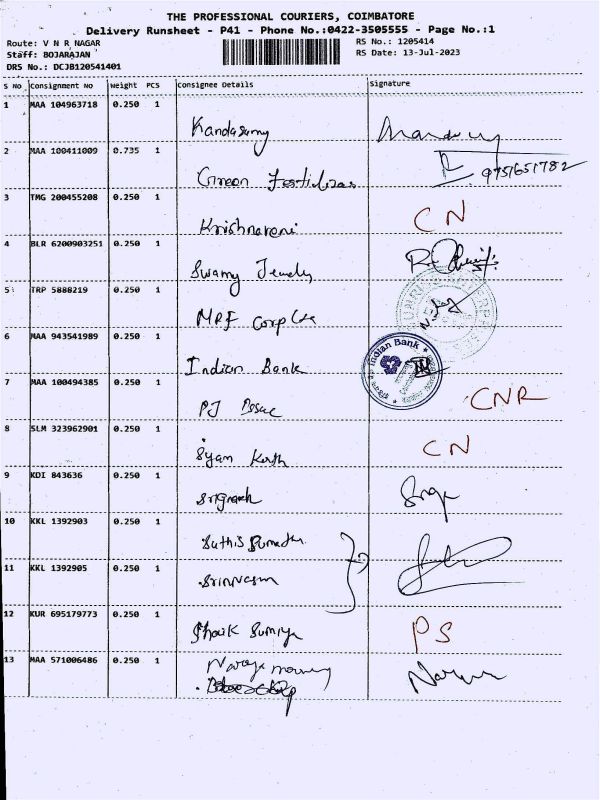 THE PROFESSIONAL COURIERS, COIMBATORE
Delivery Runsheet - P41 - Phone No.:0422-3505555 - Page No.:1
Route: V N R NAGAR
Staff: BOJARAJAN
DRS No.: DCJB120541401
RS No.: 1205414
RS Date: 13-Jul-2023
S No Consignment No Weight PCS Consignee Details Signature
1 MAA 104963718 0.250 1
Kandasamy
2 MAA 100411009 0.735 1
9751651782
Green
3 TMG 200455208 0.250 1
Krishnaveni CN
4 BLR 6200903251 0.250 1
Swamy Jewelry
5 TRP 5888219 0.250 1
MRF Corp
6 MAA 943541989 0.250 1
Indian Bank
Indian Bank
7 MAA 100494385 0.250 1
PJ CNR
8 SLM 323962901 0.250 1
Syam CN
9 KDI 843636 0.250 1
10 KKL 1392903 0.250 1
11 KKL 1392905 0.250 1
Srinivasan
12 KUR 695179773 0.250 1
Shaik Sumiya PS
13 MAA 571006486 0.250 1